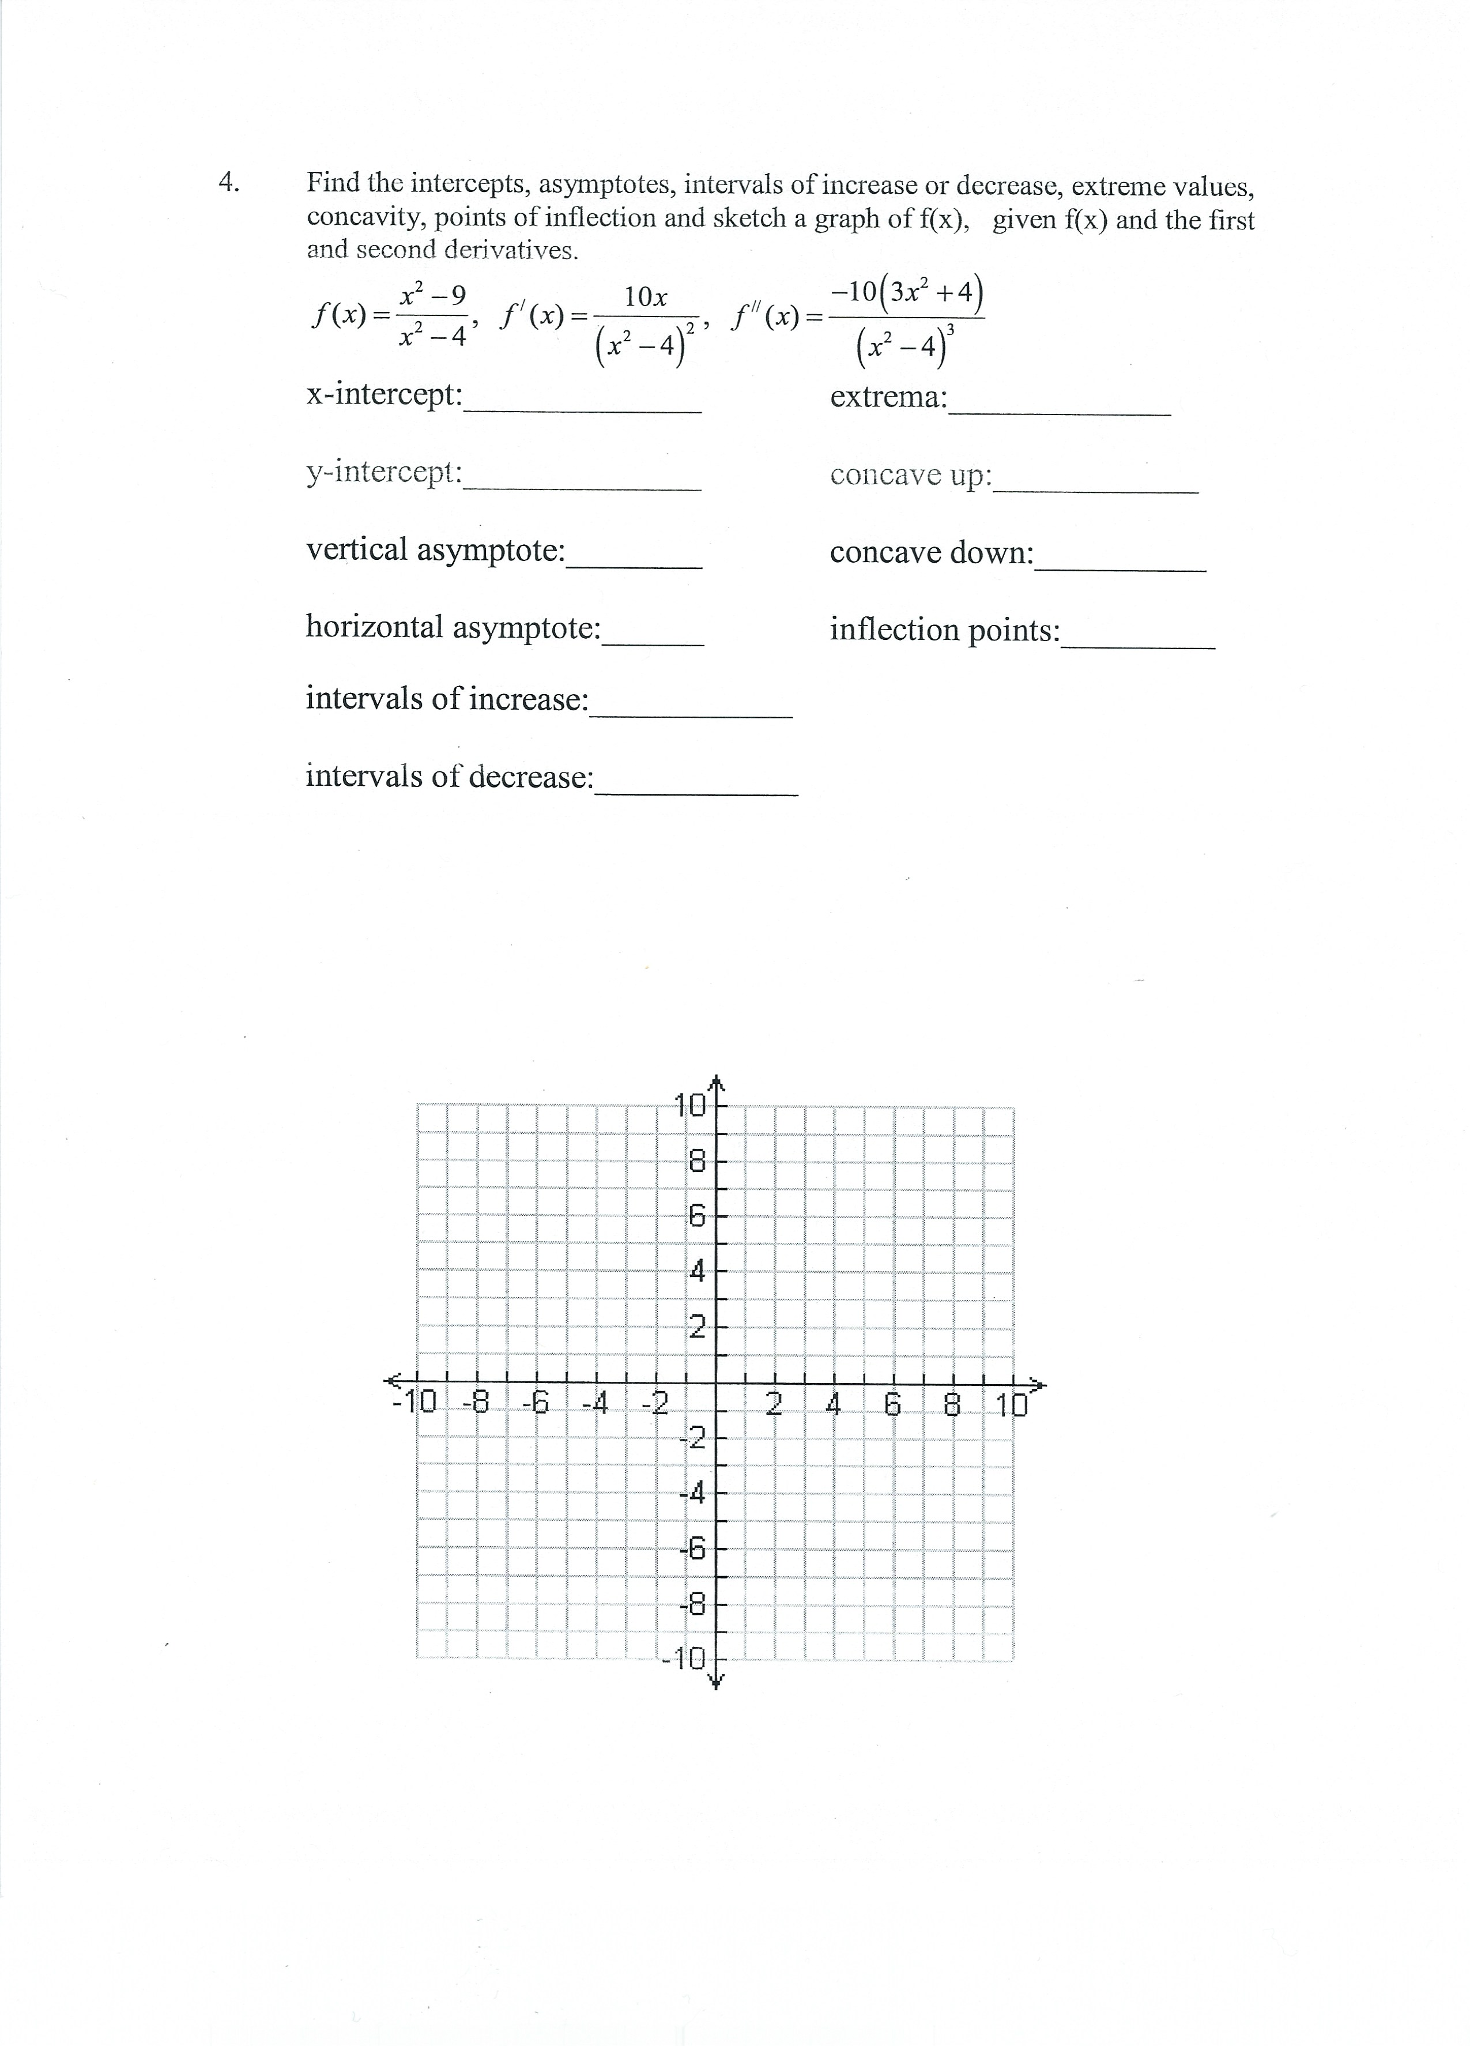 4. Find the intercepts, asymptotes, intervals of increase or decrease, extreme values,
concavity, points of inflection and sketch a graph of f(x), given f(x) and the first
and second derivatives.
f(x) = \frac{x^2 - 9}{x^2 - 4}, f'(x) = \frac{10x}{(x^2 - 4)^2}, f''(x) = \frac{-10(3x^2 + 4)}{(x^2 - 4)^3}
x-intercept:______________ extrema:______________
y-intercept:______________ concave up:____________
vertical asymptote:________ concave down:__________
horizontal asymptote:______ inflection points:_________
intervals of increase:____________
intervals of decrease:____________
10
8
6
4
2
-10 -8 -6 -4 -2 2 4 6 8 10
-2
-4
-6
-8
-10